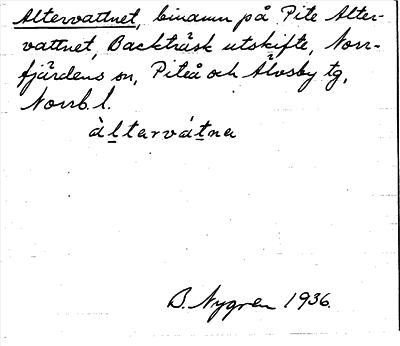 Altervattnet, binamn på Pite Alter-
vattnet, Backträsk utskifte, Norr-
fjärdens sn, Piteå och Älvsby tg,
Norrb. l.
àltarvátna
B. Nygren 1936.